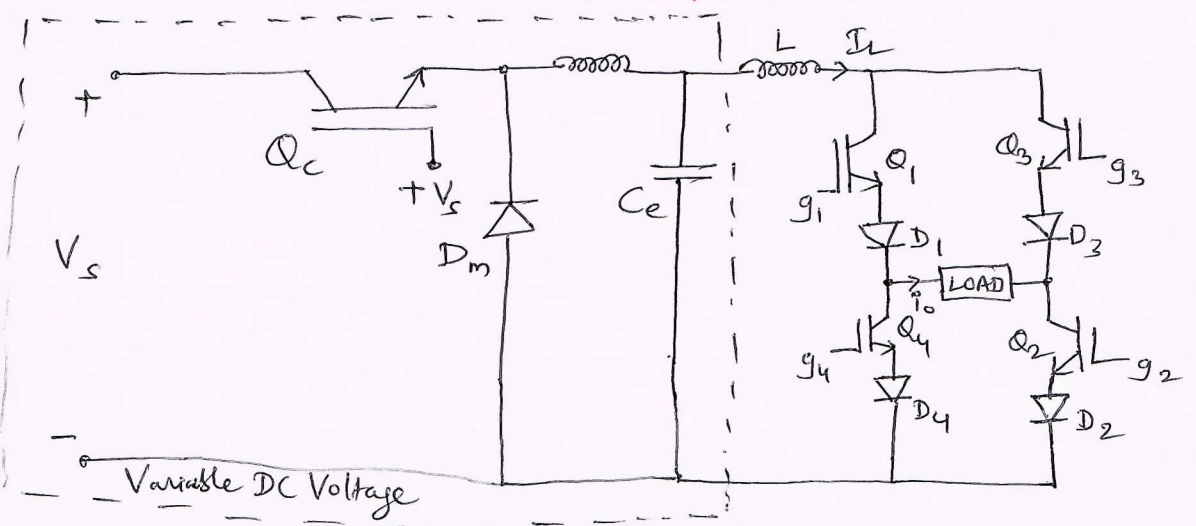 L
I_L
+
Q_c
+ V_s
V_s
D_m
C_e
Q_1
g_1
D_1
Q_3
g_3
D_3
LOAD
i_o
Q_4
g_4
D_4
Q_2
g_2
D_2
-
Variable DC Voltage